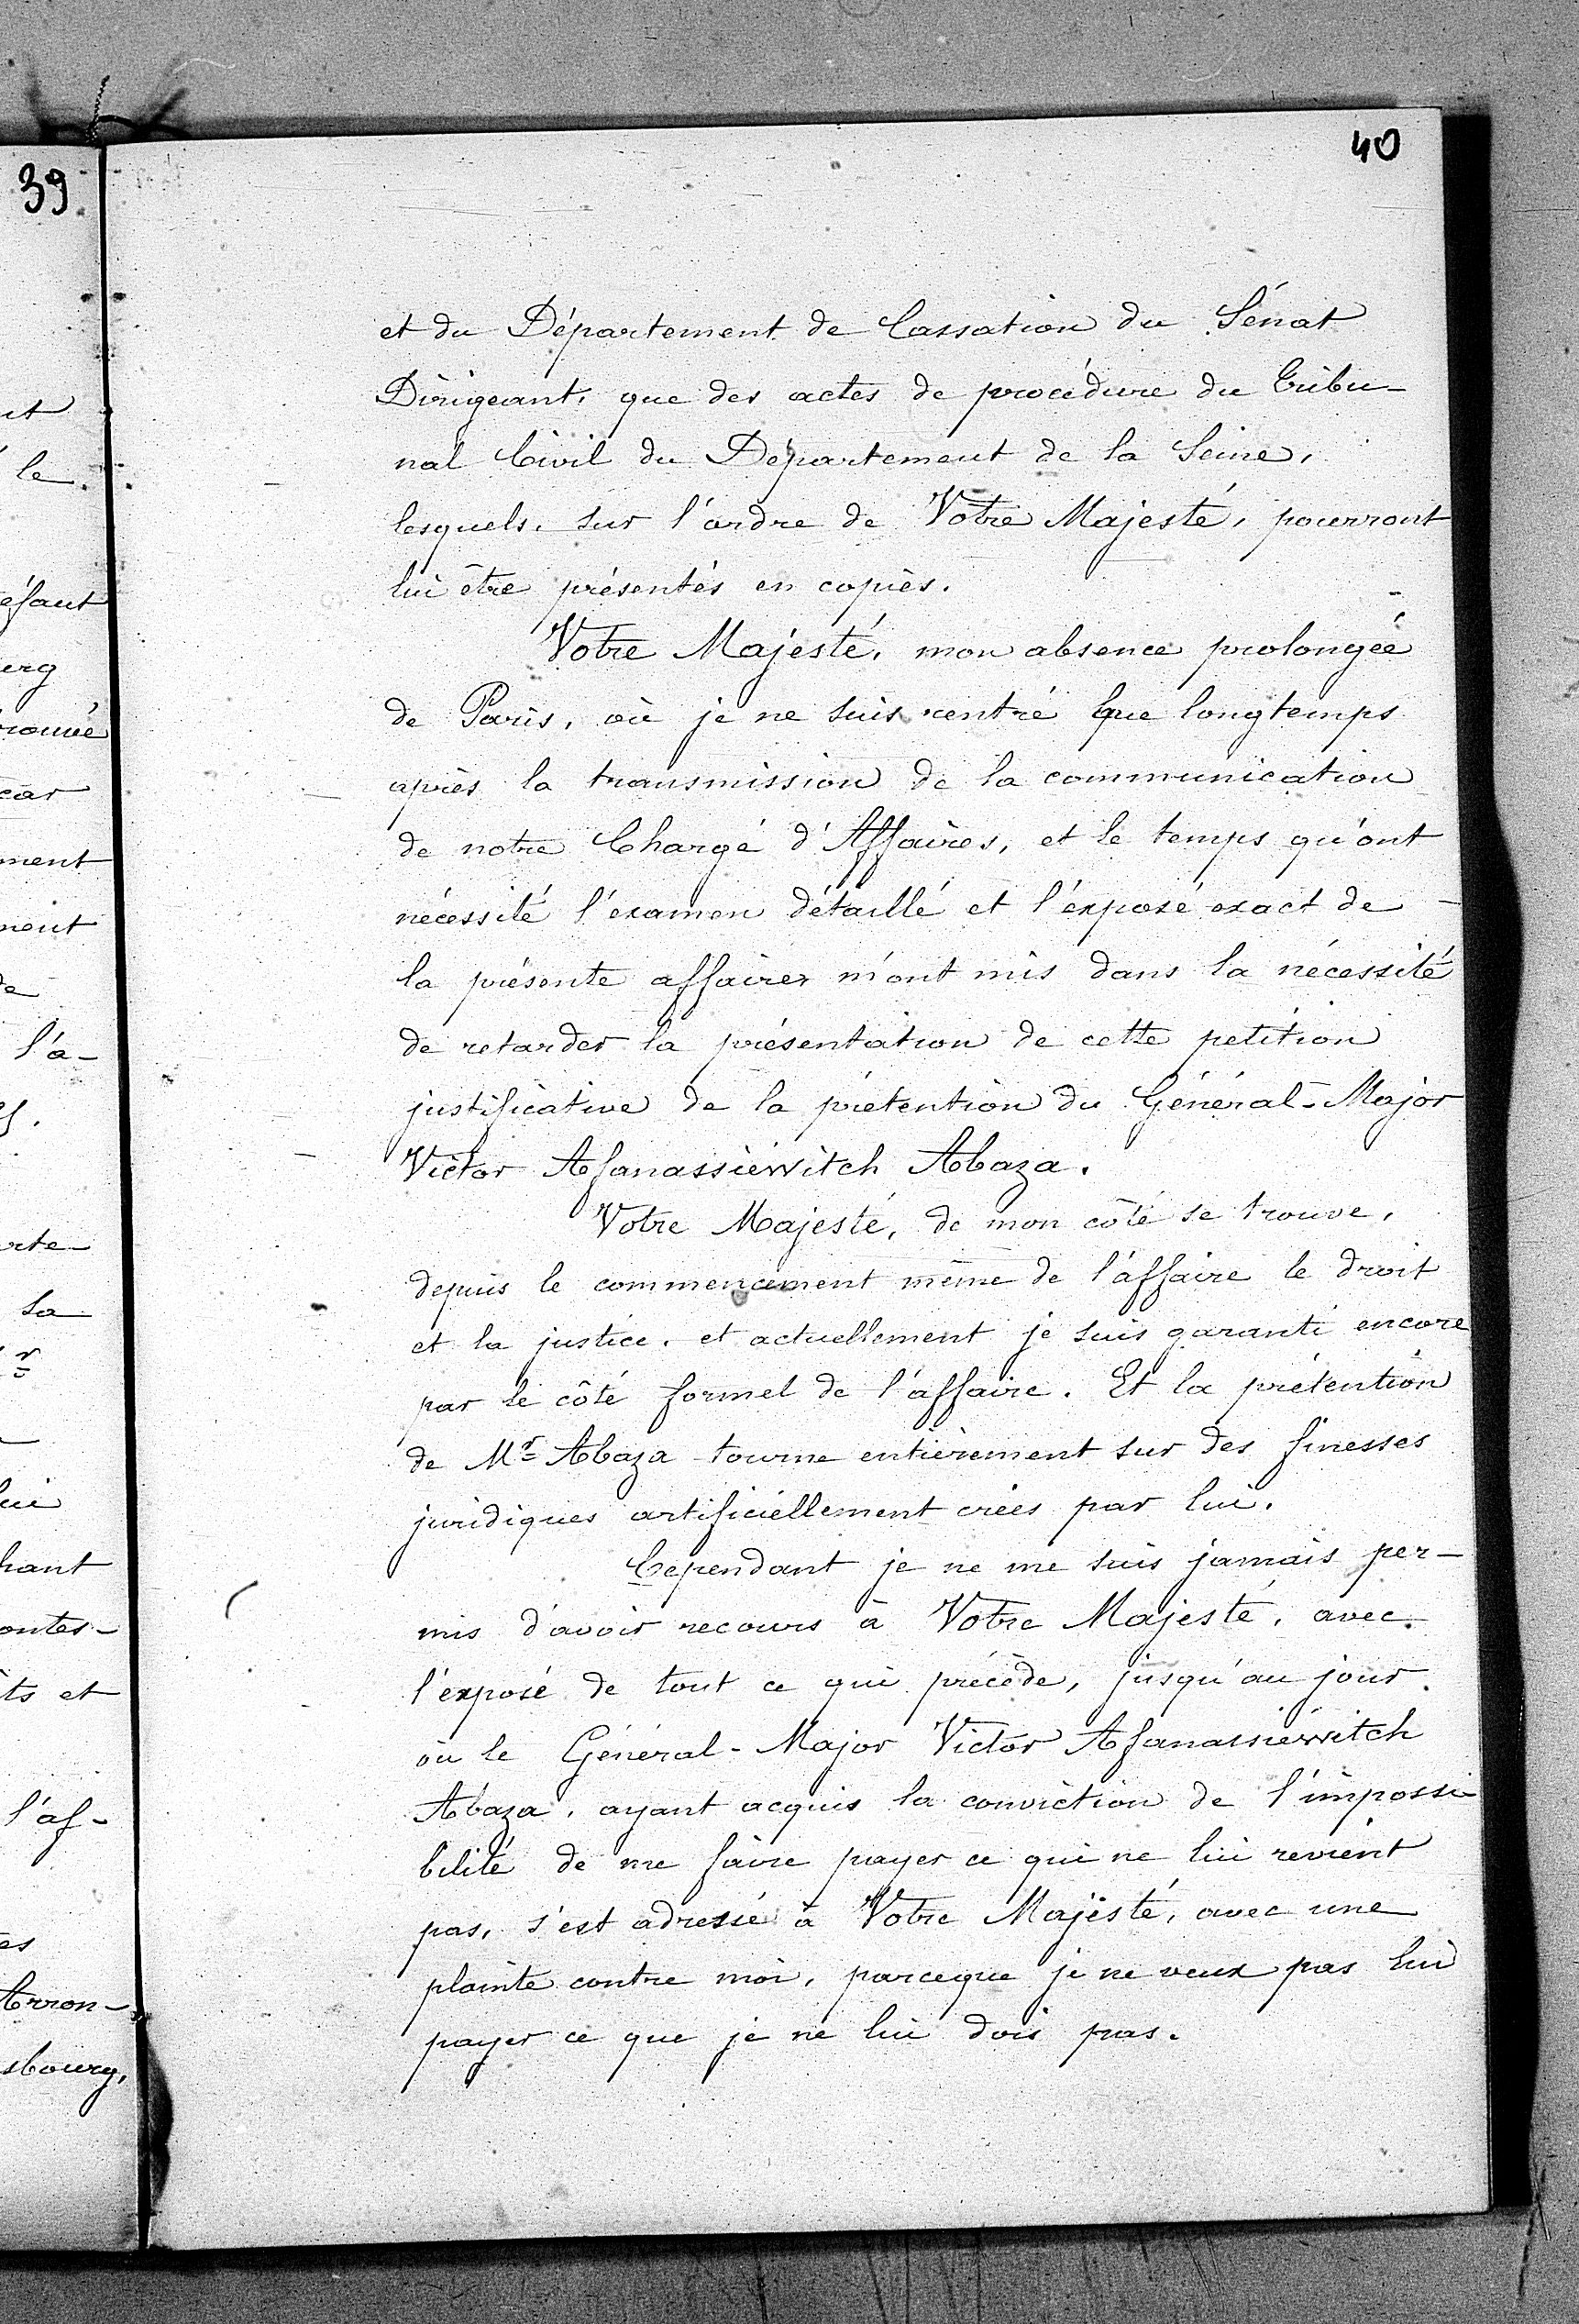 40
et du Département de Cassation du Sénat
Dirigeant, que des actes de procédure du Tribu-
nal Civil du Département de la Seine,
lesquels, sur l'ordre de Votre Majesté, pourront
lui être présentés en copies.
Votre Majesté, mon absence prolongée
de Paris, où je ne suis rentré que longtemps
après la transmission de la communication
de notre Chargé d'Affaires, et le temps qu'ont
nécessité l'examen détaillé et l'exposé exact de
la présente affaires m'ont mis dans la nécessité
de retarder la présentation de cette petition
justificative de la prétention du Général-Major
Victor Afanassiéwitch Abaza.
Votre Majesté, de mon côté se trouve,
depuis le commencement même de l'affaire le droit
et la justice, et actuellement je suis garanti encore
par le côté formel de l'affaire. Et la prétention
de Mr Abaza tourne entièrement sur des finesses
juridiques artificiellement créés par lui.
Cependant je ne me suis jamais per-
mis d'avoir recours à Votre Majesté, avec
l'exposé de tout ce qui précède, jusqu'au jour
où le Général-Major Victor Afanassiéwitch
Abaza, ayant acquis la conviction de l'impossi-
bilité de me faire payer ce qui ne lui revient
pas, s'est adressé à Votre Majesté, avec une
plainte contre moi, parceque je ne veux pas lui
payer ce que je ne lui dois pas.
39
le
erg
car
ment
l'a-
sa
lui
hant
ontes-
ts et
l'af-
Arron-
sbourg,